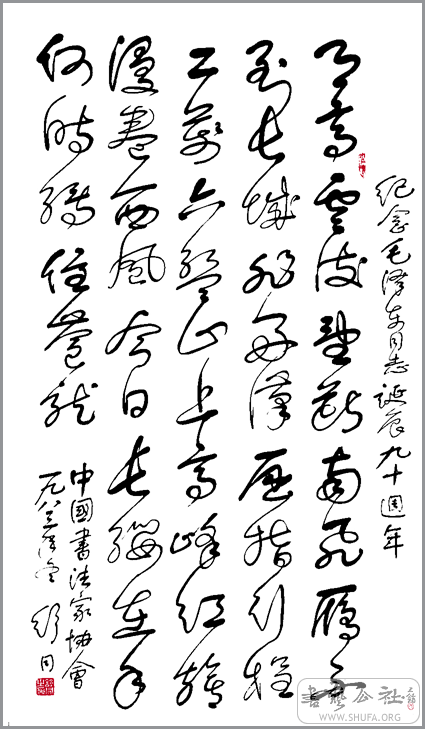 紀念毛澤東同志誕辰九十週年
天高雲淡望斷南飛雁不
到長城非好漢屈指行程
二萬六盤山上高峰紅旗
漫卷西風今日長纓在手
何時縛住蒼龍
中國書法家协會
一九八三年冬 舒同
書藝公社
WWW.SHUFA.ORG